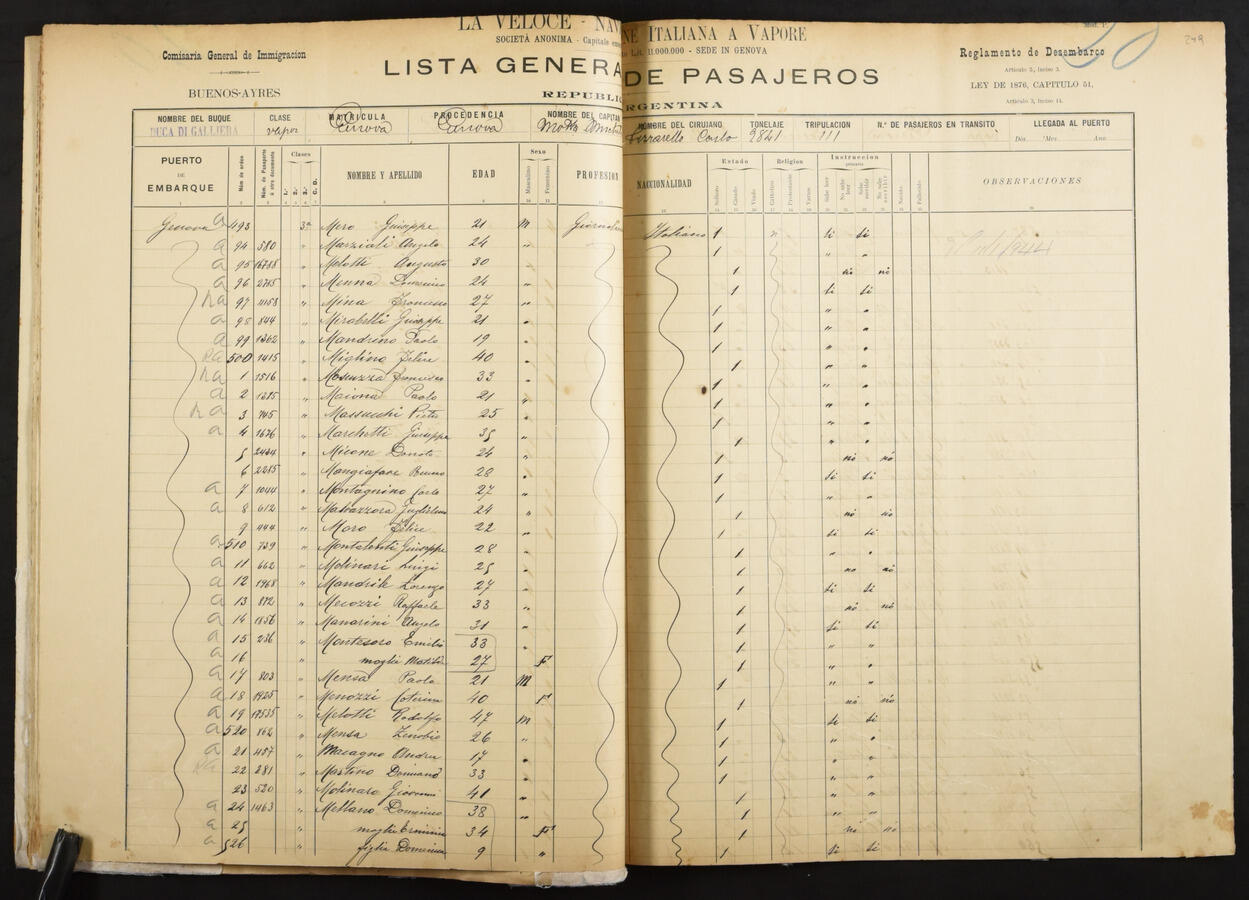 LA VELOCE - NAV NE ITALIANA A VAPORE
SOCIETÀ ANONIMA - Capitale Lit. 11.000.000 - SEDE IN GENOVA
Comisaria General de Immigracion
BUENOS-AYRES
LISTA GENERA DE PASAJEROS
REPUBLIC RGENTINA
Reglamento de Desembarco
Articulo 5, Inciso 3.
LEY DE 1876, CAPITULO 51,
Articulo 3, Inciso 14.
NOMBRE DEL BUQUE CLASE MATRICULA PROCEDENCIA NOMBRE DEL CAPITAN NOMBRE DEL CIRUJANO TONELAJE TRIPULACION N.º DE PASAJEROS EN TRANSITO LLEGADA AL PUERTO
DUCA DI GALLIERA vapor Genova Genova Carlo 2841 111 Dia Mes Ano
PUERTO DE EMBARQUE Núm de orden Núm. de Pasaporte ú otro documento Clases 1.ª 2.ª 3.ª C. D. NOMBRE Y APELLIDO EDAD Sexo Masculino Femenino PROFESION NACCIONALIDAD Estado Soltero Casado Viudo Religion Catholica Protestante Varias Instruccion primaria Sabe leer No sabe leer Sabe escribir No sabe escribir OBSERVACIONES
Genova a 493 3a Mero Giuseppe 21 M Italiano 1 " si si
a 94 580 " Marziali Angelo 24 " 1 " "
a 95 16788 " Melotti Augusto 30 " 1 no no
a 96 2765 " Menna Domenico 24 " 1 si si
97 11153 " Mina Francesco 27 " 1 " "
a 98 844 " Mirabelli Giuseppe 21 " 1 " "
a 99 1362 " Mandrino Paolo 19 " 1 " "
500 1415 " Miglino Felice 40 " 1 " "
1 1516 " Francesco 33 " 1 " "
a 2 " Maiona Paolo 21 " 1 " "
3 " Massucchi Pietro 25 " 1 " "
a 4 1676 " Marchetti Giuseppe 35 " 1 " "
5 2434 " Micone Donato 24 " 1 no no
6 2285 " Mangiafave 28 " 1 si si
a 7 1044 " Montagnino Carlo 27 " 1 " "
a 8 612 " Guglielmo 24 " 1 no no
9 444 " Moro Felice 22 " 1 si si
a 510 739 " Giuseppe 28 " 1 " "
a 11 662 " Molinari Luigi 25 " 1 no no
a 12 1968 " Mandrik Lorenzo 27 " 1 si si
a 13 872 " Mecozzi Raffaele 33 " 1 no no
a 14 1856 " Manarini Angelo 31 " 1 si si
a 15 236 " Montesoro Emilio 33 " 1 " "
a 16 " moglie Matilde 27 F 1 " "
a 17 803 " Mensa Paolo 21 M 1 " "
a 18 1925 " Menozzi Caterina 40 F 1 no no
a 19 17535 " Melotti Rodolfo 47 M 1 si si
a 520 862 " Mensa Zenobio 26 " 1 " "
a 21 457 " Macagno Andrea 17 " 1 " "
22 281 " Martino Damiano 33 " 1 " "
23 520 " Molinaro Giovanni 41 " 1 " "
a 24 1463 " Mellano Domenico 38 " 1 " "
a 25 " moglie Erminia 34 F 1 no no
a 526 " figlia Domenica 9 " 1 si si